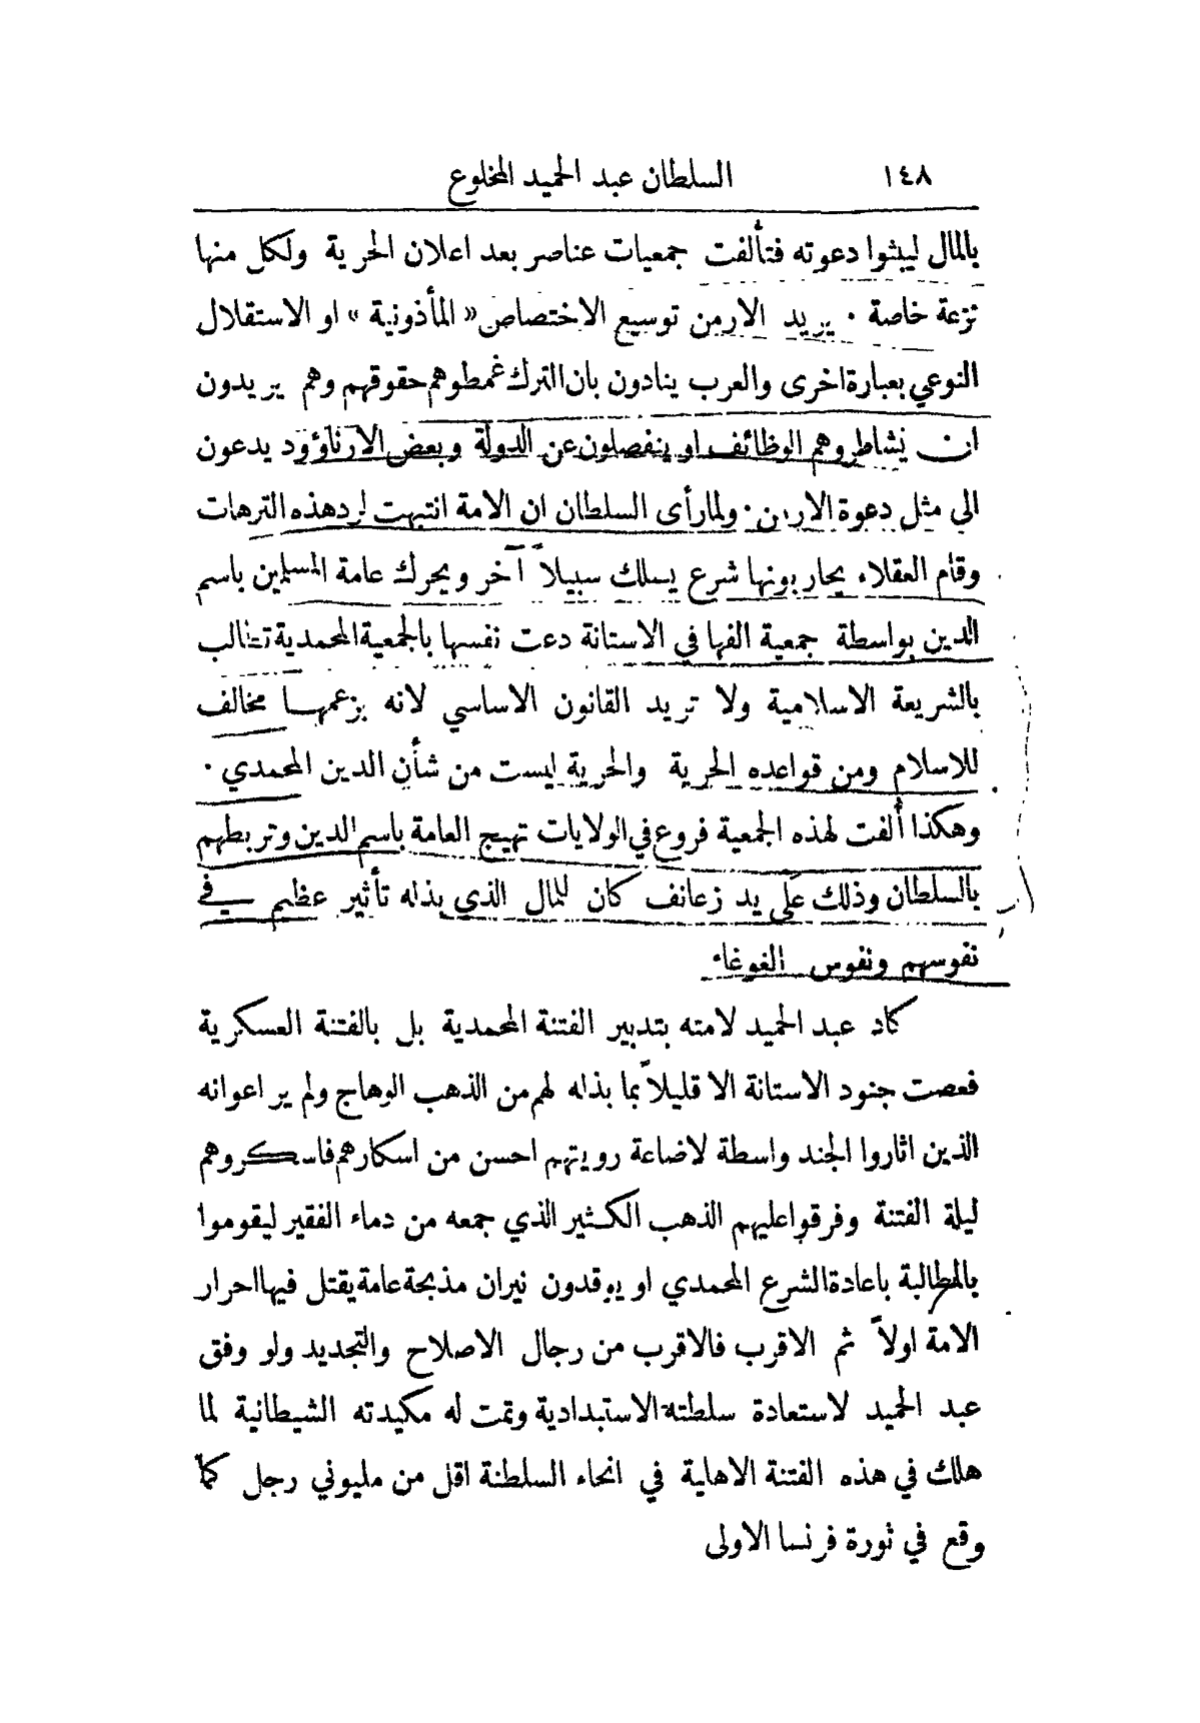 ١٤٨ السلطان عبد الحميد المخلوع
بالمال ليبثوا دعوته فتألفت جمعيات عناصر بعد اعلان الحرية ولكل منها
نزعة خاصة . يريد الارمن توسيع الاختصاص « المأذونية » او الاستقلال
النوعي بعبارة اخرى والعرب ينادون بان الترك غمطوهم حقوقهم وهم يريدون
ان نشاطروهم الوظائف او ينفصلون عن الدولة وبعض الارناؤود يدعون
الى مثل دعوة الارمن . ولما رأى السلطان ان الامة انتبهت لرد هذه الترهات
وقام العقلاء يحاربونها شرع يسلك سبيلاً آخر ويحرك عامة المسلمين باسم
الدين بواسطة جمعية الفها في الاستانة دعت نفسها بالجمعية المحمدية تطالب
بالشريعة الاسلامية ولا تريد القانون الاساسي لانه بزعمها مخالف
للاسلام ومن قواعده الحرية والحرية ليست من شأن الدين المحمدي .
وهكذا أُلفت لهذه الجمعية فروع في الولايات تهيج العامة باسم الدين وتربطهم
بالسلطان وذلك على يد زعانف كان للمال الذي بذله تأثير عظيم في
نفوسهم ونفوس الغوغاء
كاد عبد الحميد لامته بتدبير الفتنة المحمدية بل بالفتنة العسكرية
فعصت جنود الاستانة الا قليلاً بما بذله لهم من الذهب الوهاج ولم ير اعوانه
الذين اثاروا الجند واسطة لاضاعة رويتهم احسن من اسكارهم فاسكروهم
ليلة الفتنة وفرقوا عليهم الذهب الكثير الذي جمعه من دماء الفقير ليقوموا
بالمطالبة باعادة الشرع المحمدي او يوقدون نيران مذبحة عامة يقتل فيها احرار
الامة اولاً ثم الاقرب فالاقرب من رجال الاصلاح والتجديد ولو وفق
عبد الحميد لاستعادة سلطته الاستبدادية وتمت له مكيدته الشيطانية لما
هلك في هذه الفتنة الاهلية في انحاء السلطنة اقل من مليوني رجل كما
وقع في ثورة فرنسا الاولى